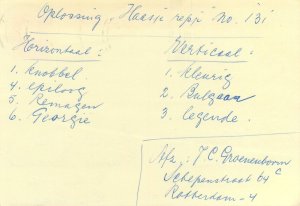 Oplossing "Haasje repje" no. 131
Horizontaal:
1. knobbel.
4. epiloog
5. Remagen
6. Georgie
Verticaal:
1. kleurig
2. Bulgaar
3. legende.
Afz: J.C. Groeneboom
Schepenstraat 64 c
Rotterdam-4